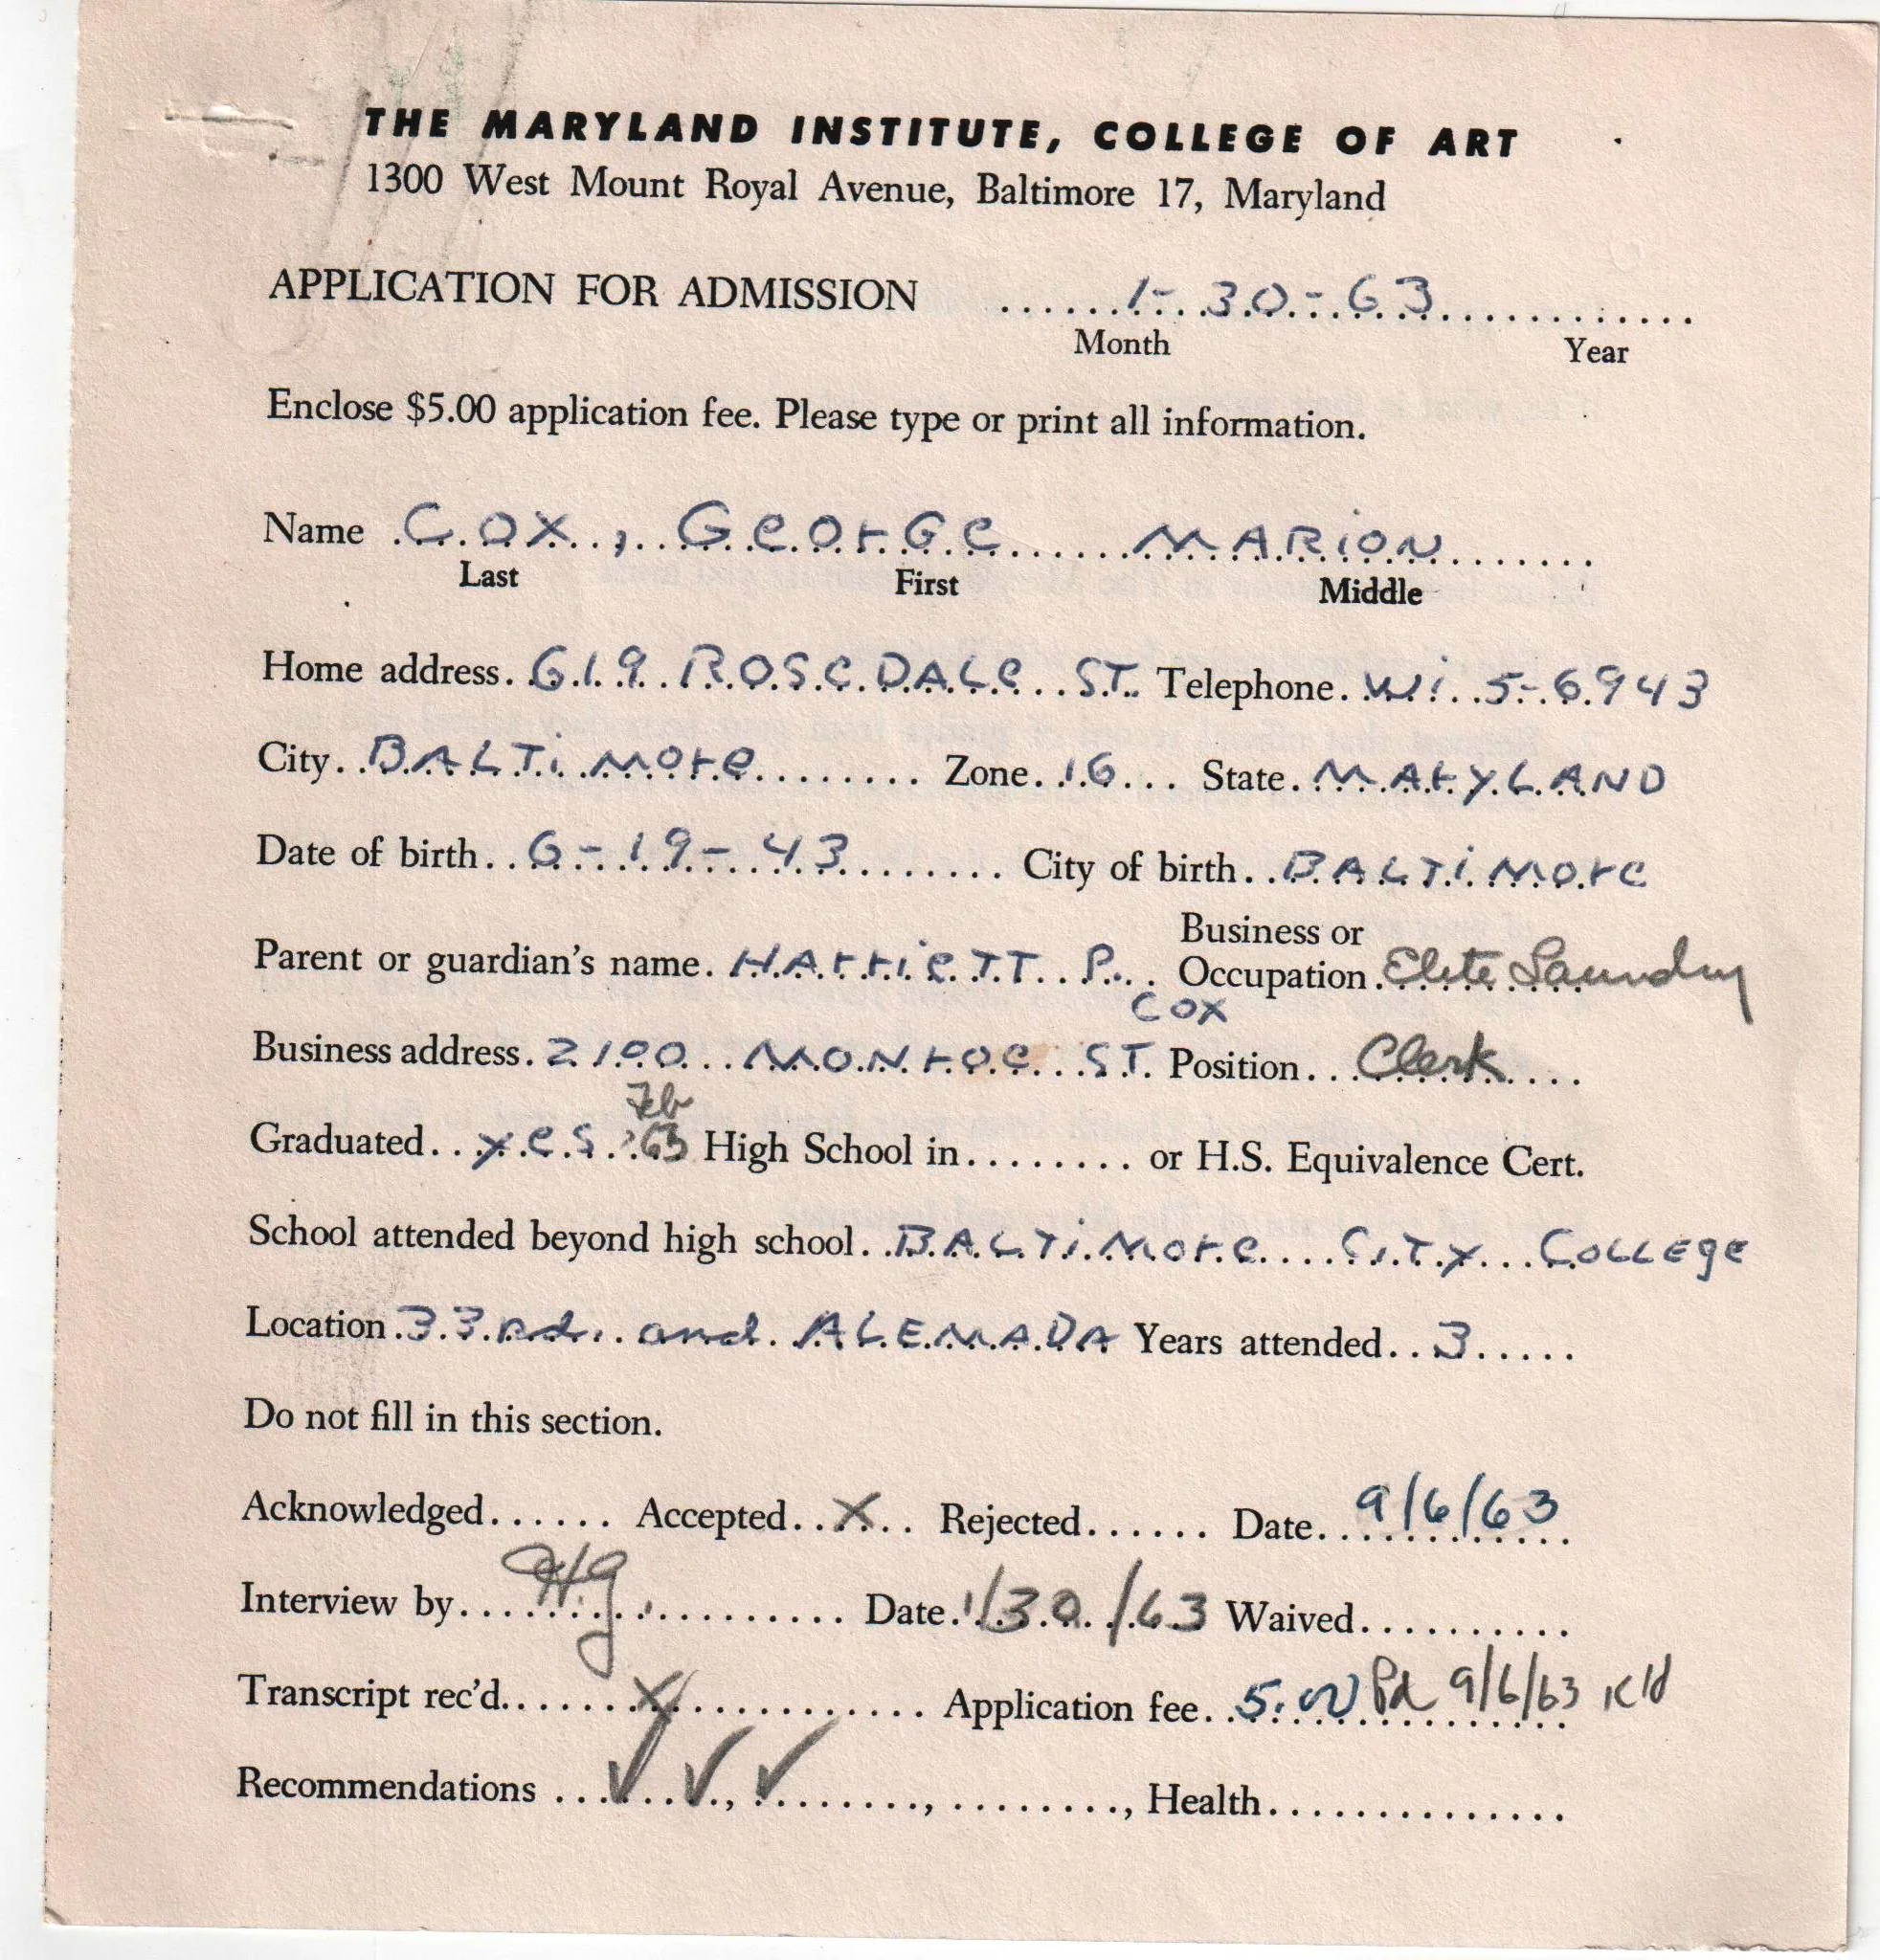 THE MARYLAND INSTITUTE, COLLEGE OF ART
1300 West Mount Royal Avenue, Baltimore 17, Maryland
APPLICATION FOR ADMISSION ......1-30-63.............
Month Year
Enclose $5.00 application fee. Please type or print all information.
Name COX, GeOrGe MARiON
Last First Middle
Home address. 619 ROSeDALe ST. Telephone. Wi. 5-6943
City. BALTiMOre Zone. 16 State. MArYLAND
Date of birth. 6-19-43 City of birth. BALTiMOre
Business or
Parent or guardian's name. HArrieTT P. Occupation. Elite Laundry
COX
Business address. 2100 MONrOe ST. Position. Clerk
Feb
Graduated. yes '63 High School in........ or H.S. Equivalence Cert.
School attended beyond high school. BALTiMOre CiTy COLLEgE
Location. 33.rd. and. ALEMADA Years attended. 3
Do not fill in this section.
Acknowledged...... Accepted. X Rejected...... Date. 9/6/63
Interview by. Hg Date. 1/30/63 Waived..........
Transcript rec'd. X Application fee. 5.00 Pd 9/6/63 KH
Recommendations ✓ ✓, ✓ , ........, Health..............